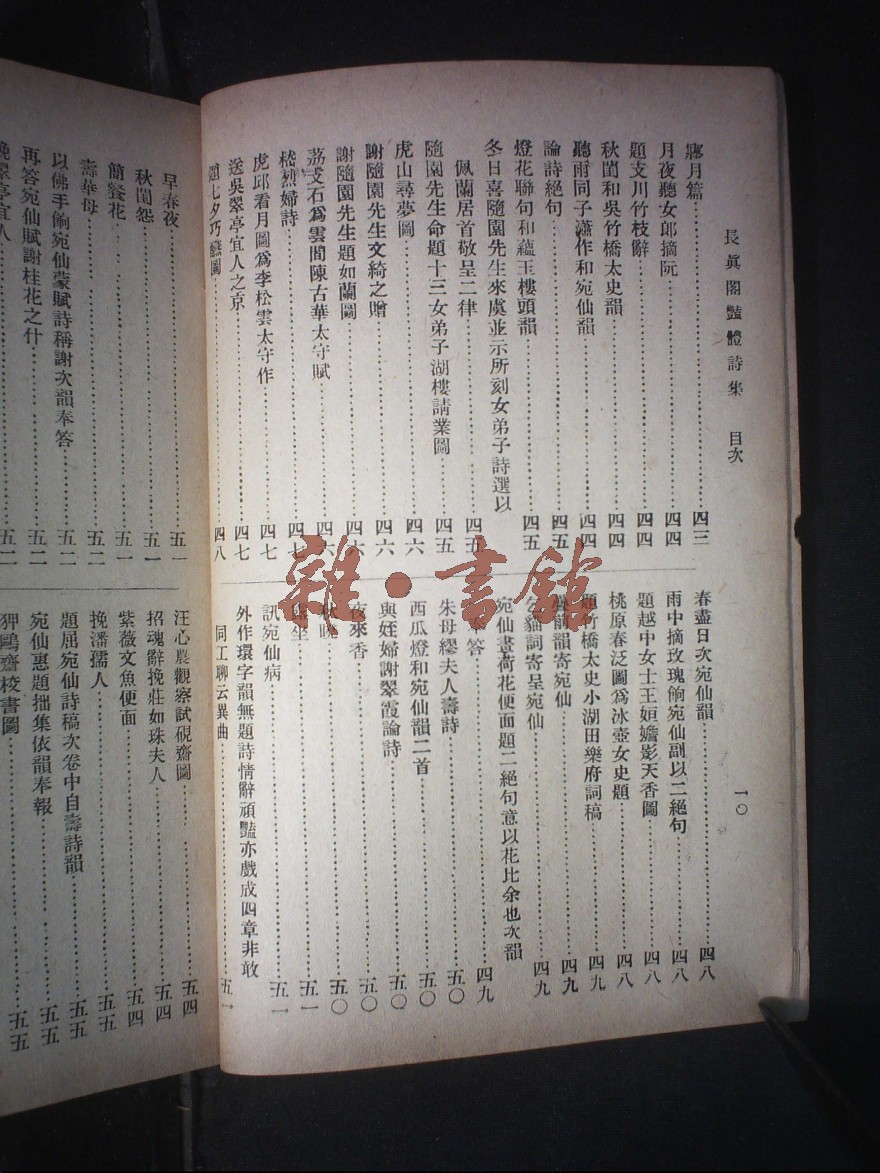 長眞閣豔體詩集　目次
一〇
月篇……四三
月夜聽女郎摘阮……四四
題支川竹枝辭……四四
秋閨和吳竹橋太史韻……四四
聽雨同子瀟作和宛仙韻……四四
論詩絕句……四五
燈花聯句和蘊玉樓頭韻……四五
冬日喜隨園先生來虞並示所刻女弟子詩選以
佩蘭居首敬呈二律……四五
隨園先生命題十三女弟子湖樓請業圖……四五
虎山尋夢圖……四六
謝隨園先生文綺之贈……四六
謝隨園先生題如蘭圖……四六
荔支石爲雲間陳古華太守賦……四六
嵇烈婦詩……四七
虎邱看月圖爲李松雲太守作……四七
送吳翠亭宜人之京……四七
題七夕巧讌圖……四八
春盡日次宛仙韻……四八
雨中摘玫瑰餉宛仙副以二絕句……四八
題越中女士王姮嬸影天香圖……四八
桃原春泛圖爲冰壺女史題……四八
題竹橋太史小湖田樂府詞稿……四九
前韻寄宛仙……四九
貓詞寄呈宛仙……四九
宛仙畫荷花便面題二絕句意以花比余也次韻
答……四九
朱母繆夫人壽詩……五〇
西瓜燈和宛仙韻二首……五〇
與姪婦謝翠霞論詩……五〇
夜來香……五〇
秋晚……五〇
坐……五一
訊宛仙病……五一
外作環字韻無題詩情辭頑豔亦戲成四章非敢
同工聊云異曲……五一
早春夜……五一
秋閨怨……五一
簡餐花……五一
壽華母……五二
以佛手餉宛仙蒙賦詩稱謝次韻奉答……五二
再答宛仙賦謝桂花之什……五二
翠亭宜人……五二
汪心農觀察試硯齋圖……五四
招魂辭挽莊如珠夫人……五四
紫薇文魚便面……五四
挽潘孺人……五五
題屈宛仙詩稿次卷中自壽詩韻……五五
宛仙惠題拙集依韻奉報……五五
狎鷗齋校書圖……五五
雜·書館